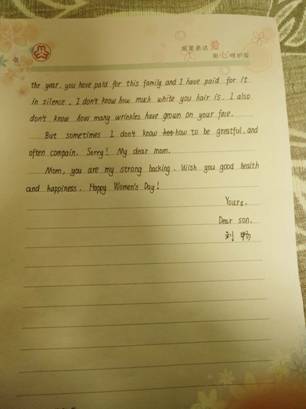 the year, you have paid for this family and I have paid for it
in silence. I don't know how much white you hair is. I also
don't know how many wrinkles have grown on your face.
But sometimes I don't know how to be greatful, and
often compain. Sorry! My dear mom.
Mom, you are my strong backing. Wish you good health
and happiness. Happy Women's Day!
Yours.
Dear son.
刘畅